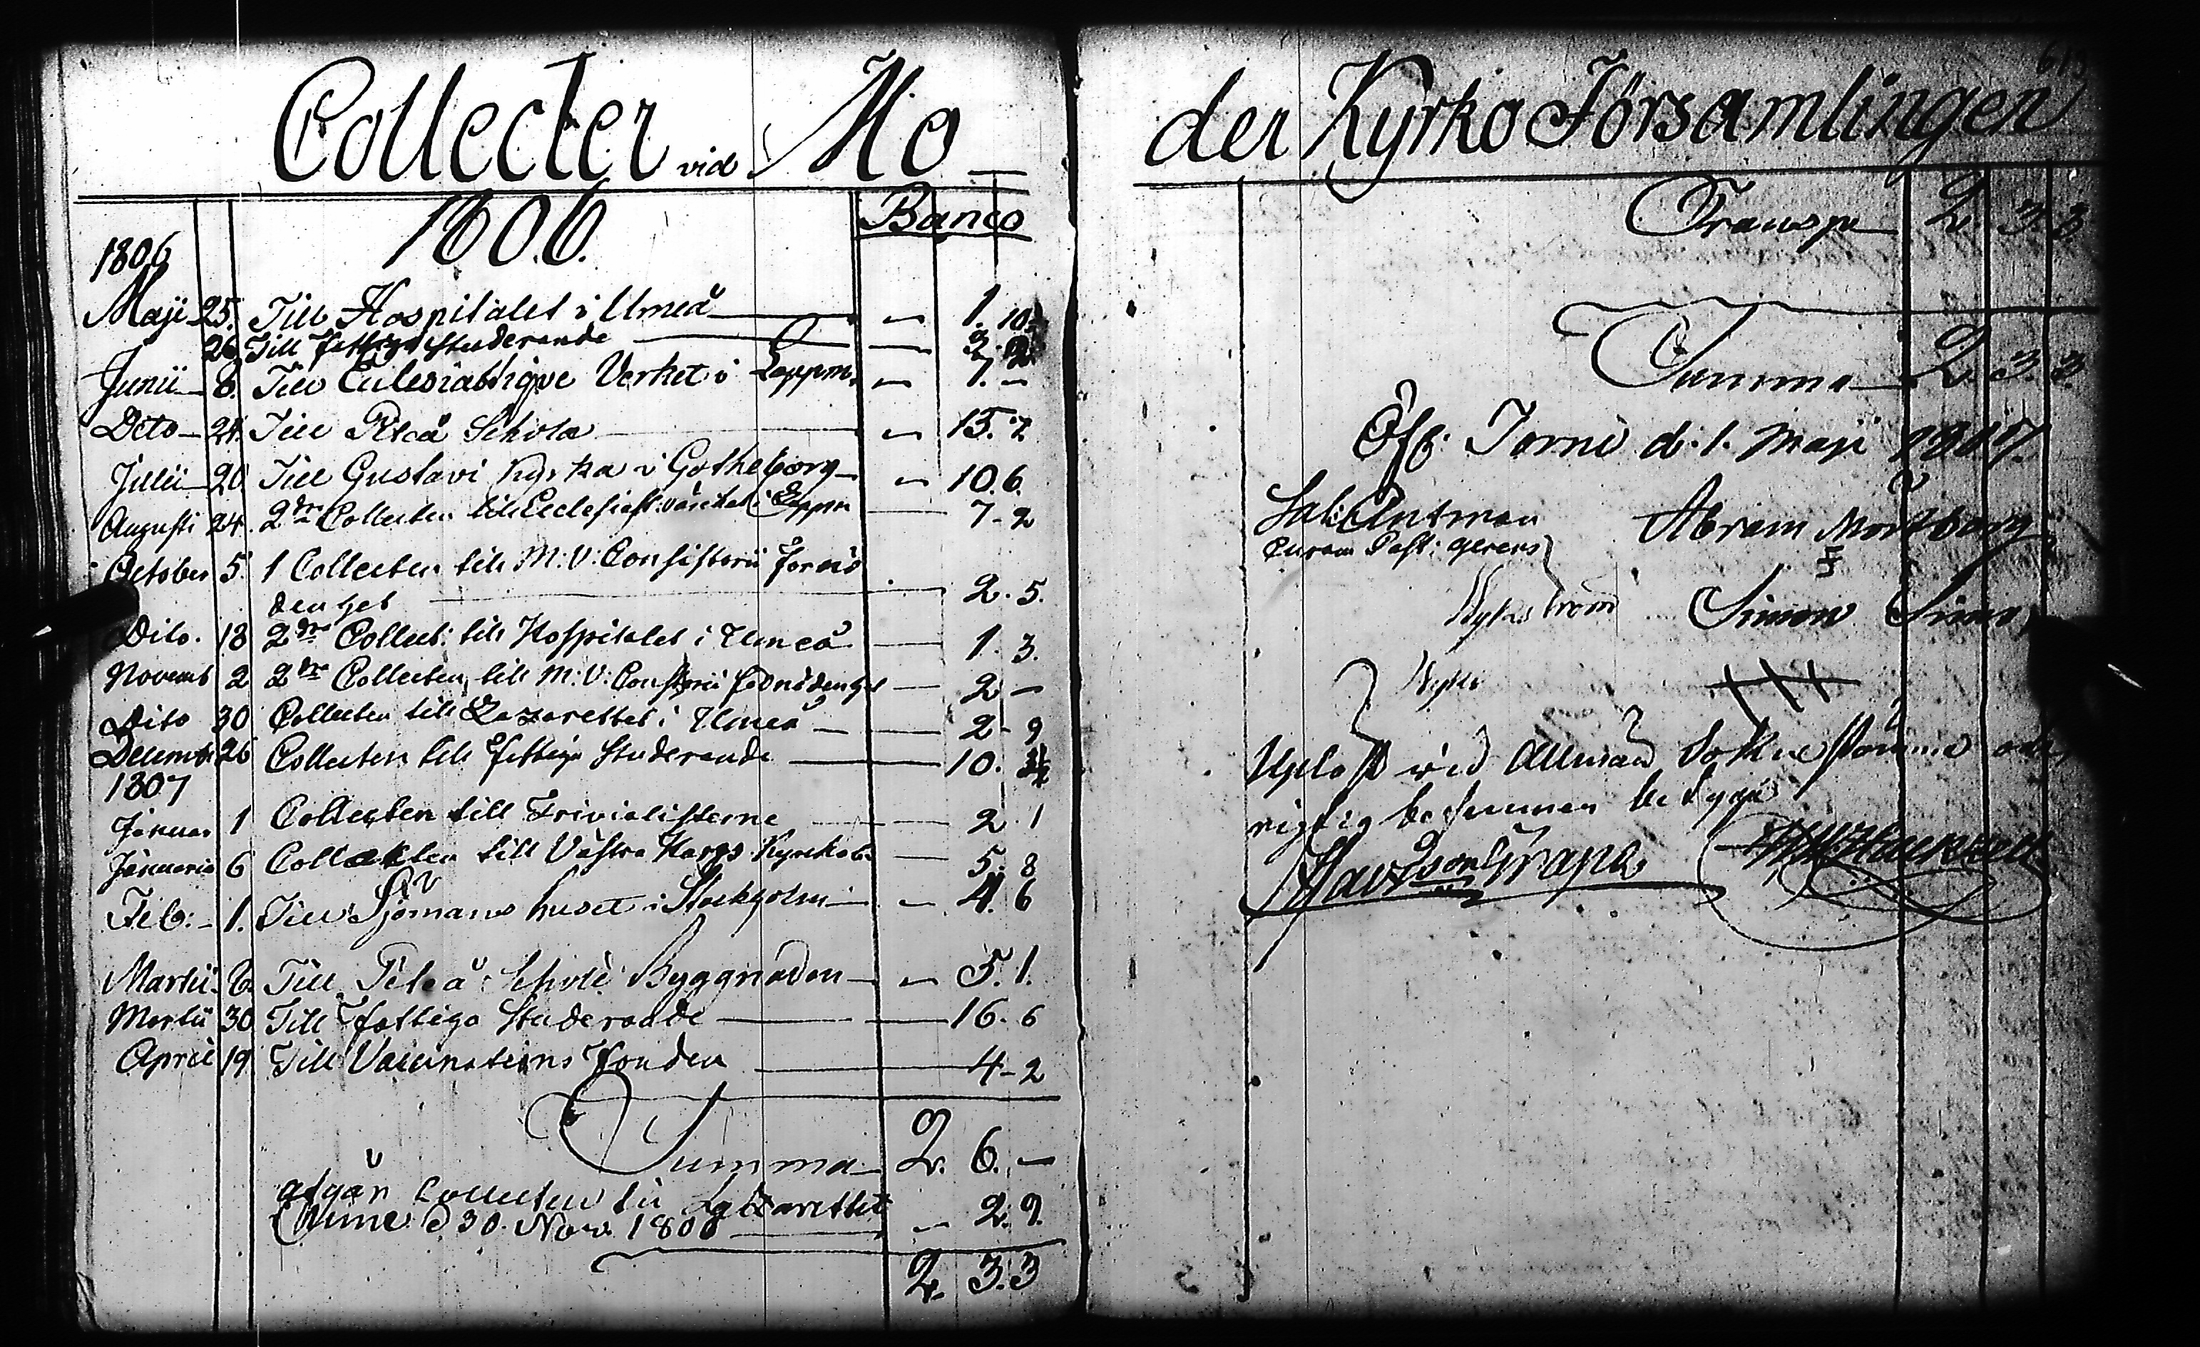 Collecter vid Mo
1806.
Banco
1806
Maji 25. Till Hospitalet i Umeå — 1. 10
26 Till fattiga Studerande — 3.
Junii 8. Till Eclesiastique Verket i Lappm. — 7. —
Dito 24. Till Piteå Schola — 15. 2
Julii 20 Till Gustavi Kyrka i Gotheborg — 10. 6.
Augusti 24. 2dra Collecten till Ecclesiast: värcket i Lappm — 7 - 2
October 5. 1 Collecten till M: V: Consistorii fornö
denhet — 2. 5.
Dito. 18 2dra Collect: till Hospitalet i Umeå — 1. 3.
Novemb 2 2dra Collecten till M: V: Consistorii förnödenhet — 2 —
Dito 30 Collecten till Lazarettet i Umeå — 2 - 9
Decembr 26 Collecten till fattiga Studerande — 10.
1807
Januar 1 Collecten till Trivialisterne — 2. 1
Januarii 6 Collekten till Västra Kyrckob. — 5. 8
Feb: 1. Till Sjömans huset i Stockholm — 4. 6
Martii 6. Till Piteå Schole Byggnaden — 5. 1.
Martii 30 Till fattiga Studerande — 16. 6
April 19. Till Vaccinations Fonden — 4 - 2
Summa 2. 6. —
afgår Collecten til Latzarettet
Ume d 30. Nov. 1806 — 2. 9.
2. 3. 3
der Kyrko Församlingen
Transp 2. 3. 3.
Summa 2. 3. 3.
Öfv: Torne d. 1. Maji 1807.
Sal: Antman Abram
Curam Past: gerens
Simon
Uplast wid Allmän Sokne stämma och
rigtig befunnen betyga
Grape